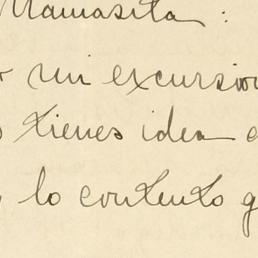 Mamasita :
mi excursion
tienes idea
lo contento